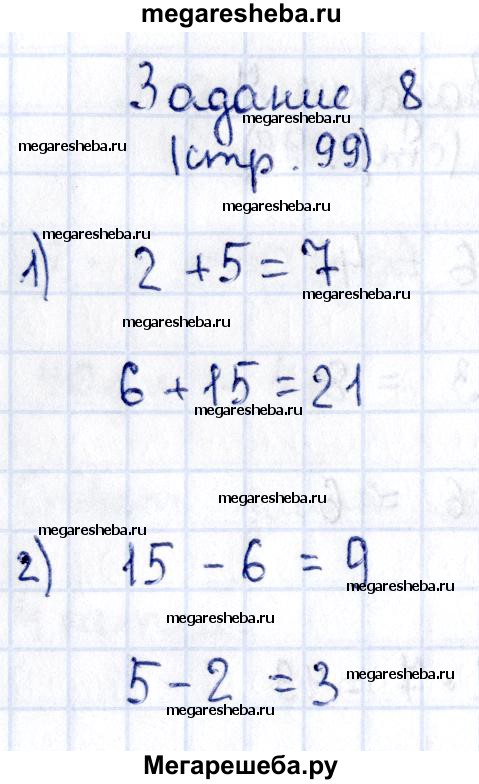 megaresheba.ru
Задание 8
megaresheba.ru
megaresheba.ru
(стр. 99)
megaresheba.ru
megaresheba.ru
1) 2 + 5 = 7
megaresheba.ru
megaresheba.ru
6 + 15 = 21
megaresheba.ru
megaresheba.ru
megaresheba.ru
2) 15 - 6 = 9
megaresheba.ru
megaresheba.ru
5 - 2 = 3
megaresheba.ru
megaresheba.ru
Мегарешеба.ру